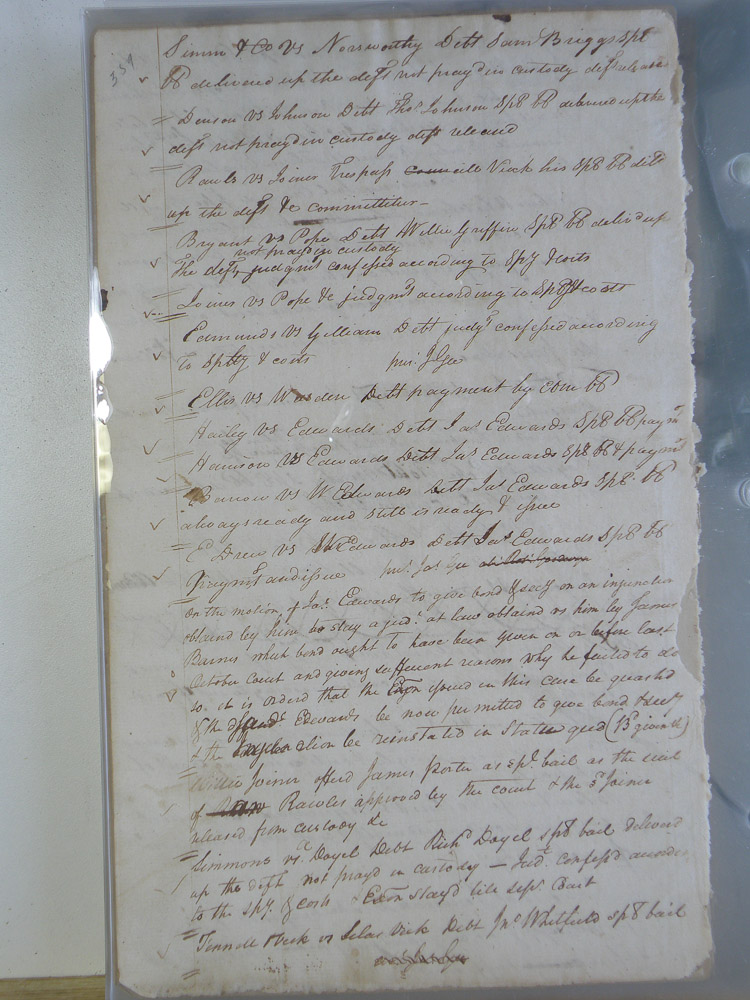 359
Simm & Co vs Norsworthy Debt Sam Briggs spl
bb delivered up the deft not pray'd in custody deft release
Denson vs Johnson Debt Thos Johnson Spl bb delivered up the
deft not pray'd in custody deft released
Rawls vs Joiner Trespass Vick his spl bb deld
up the deft &c committetur
Bryant vs Pope Debt Willie Griffin Spl bb deliv'd up
not pray'd in custody
the deft judgmt confessed according to Spy & costs
Joiner vs Pope &c judgmt according to Sp & costs
Edmunds vs Gilliam Debt judgt confessed according
to splty & costs pur. J Gee
Ellis vs Warden Debt payment by com bb
Hailey vs Edwards Debt Jas Edwards Spl bb paymt
Harrison vs Edwards Debt Jas Edwards Spl bb & paymt
Barrow vs W Edwards Debt Jas Edwards Spl bb
always ready and still is ready & issue
E Drew vs W Edwards Debt Jas Edwards Spl bb
Paymt and issue pur. Jas Gee
On the motion of Jas Edwards to give bond & secy on an injunction
obtaind by him to stay a judt at law obtaind vs him by James
Barnes which bond ought to have been given on or before last
October court and giving sufficient reasons why he failed to do
so. it is orderd that the Exon issued in this case be quashd
& the sd Edwards be now permitted to give bond & secy
& the injunction be reinstated in Statu quo (Bd given &)
Willie Joiner offerd James Porter as spl bail as the suit
of Rawles approved by the court & the sd Joiner
released from custody &c
Simmons vs Doyel Debt Richd Doyel spl bail deliverd
up the deft not prayd in custody — Judt confess'd accordg
to the spy. & costs & Exon stay'd till sept. Court
Tennell & Vick vs Silas Vick Debt Jno Whitfield spl bail